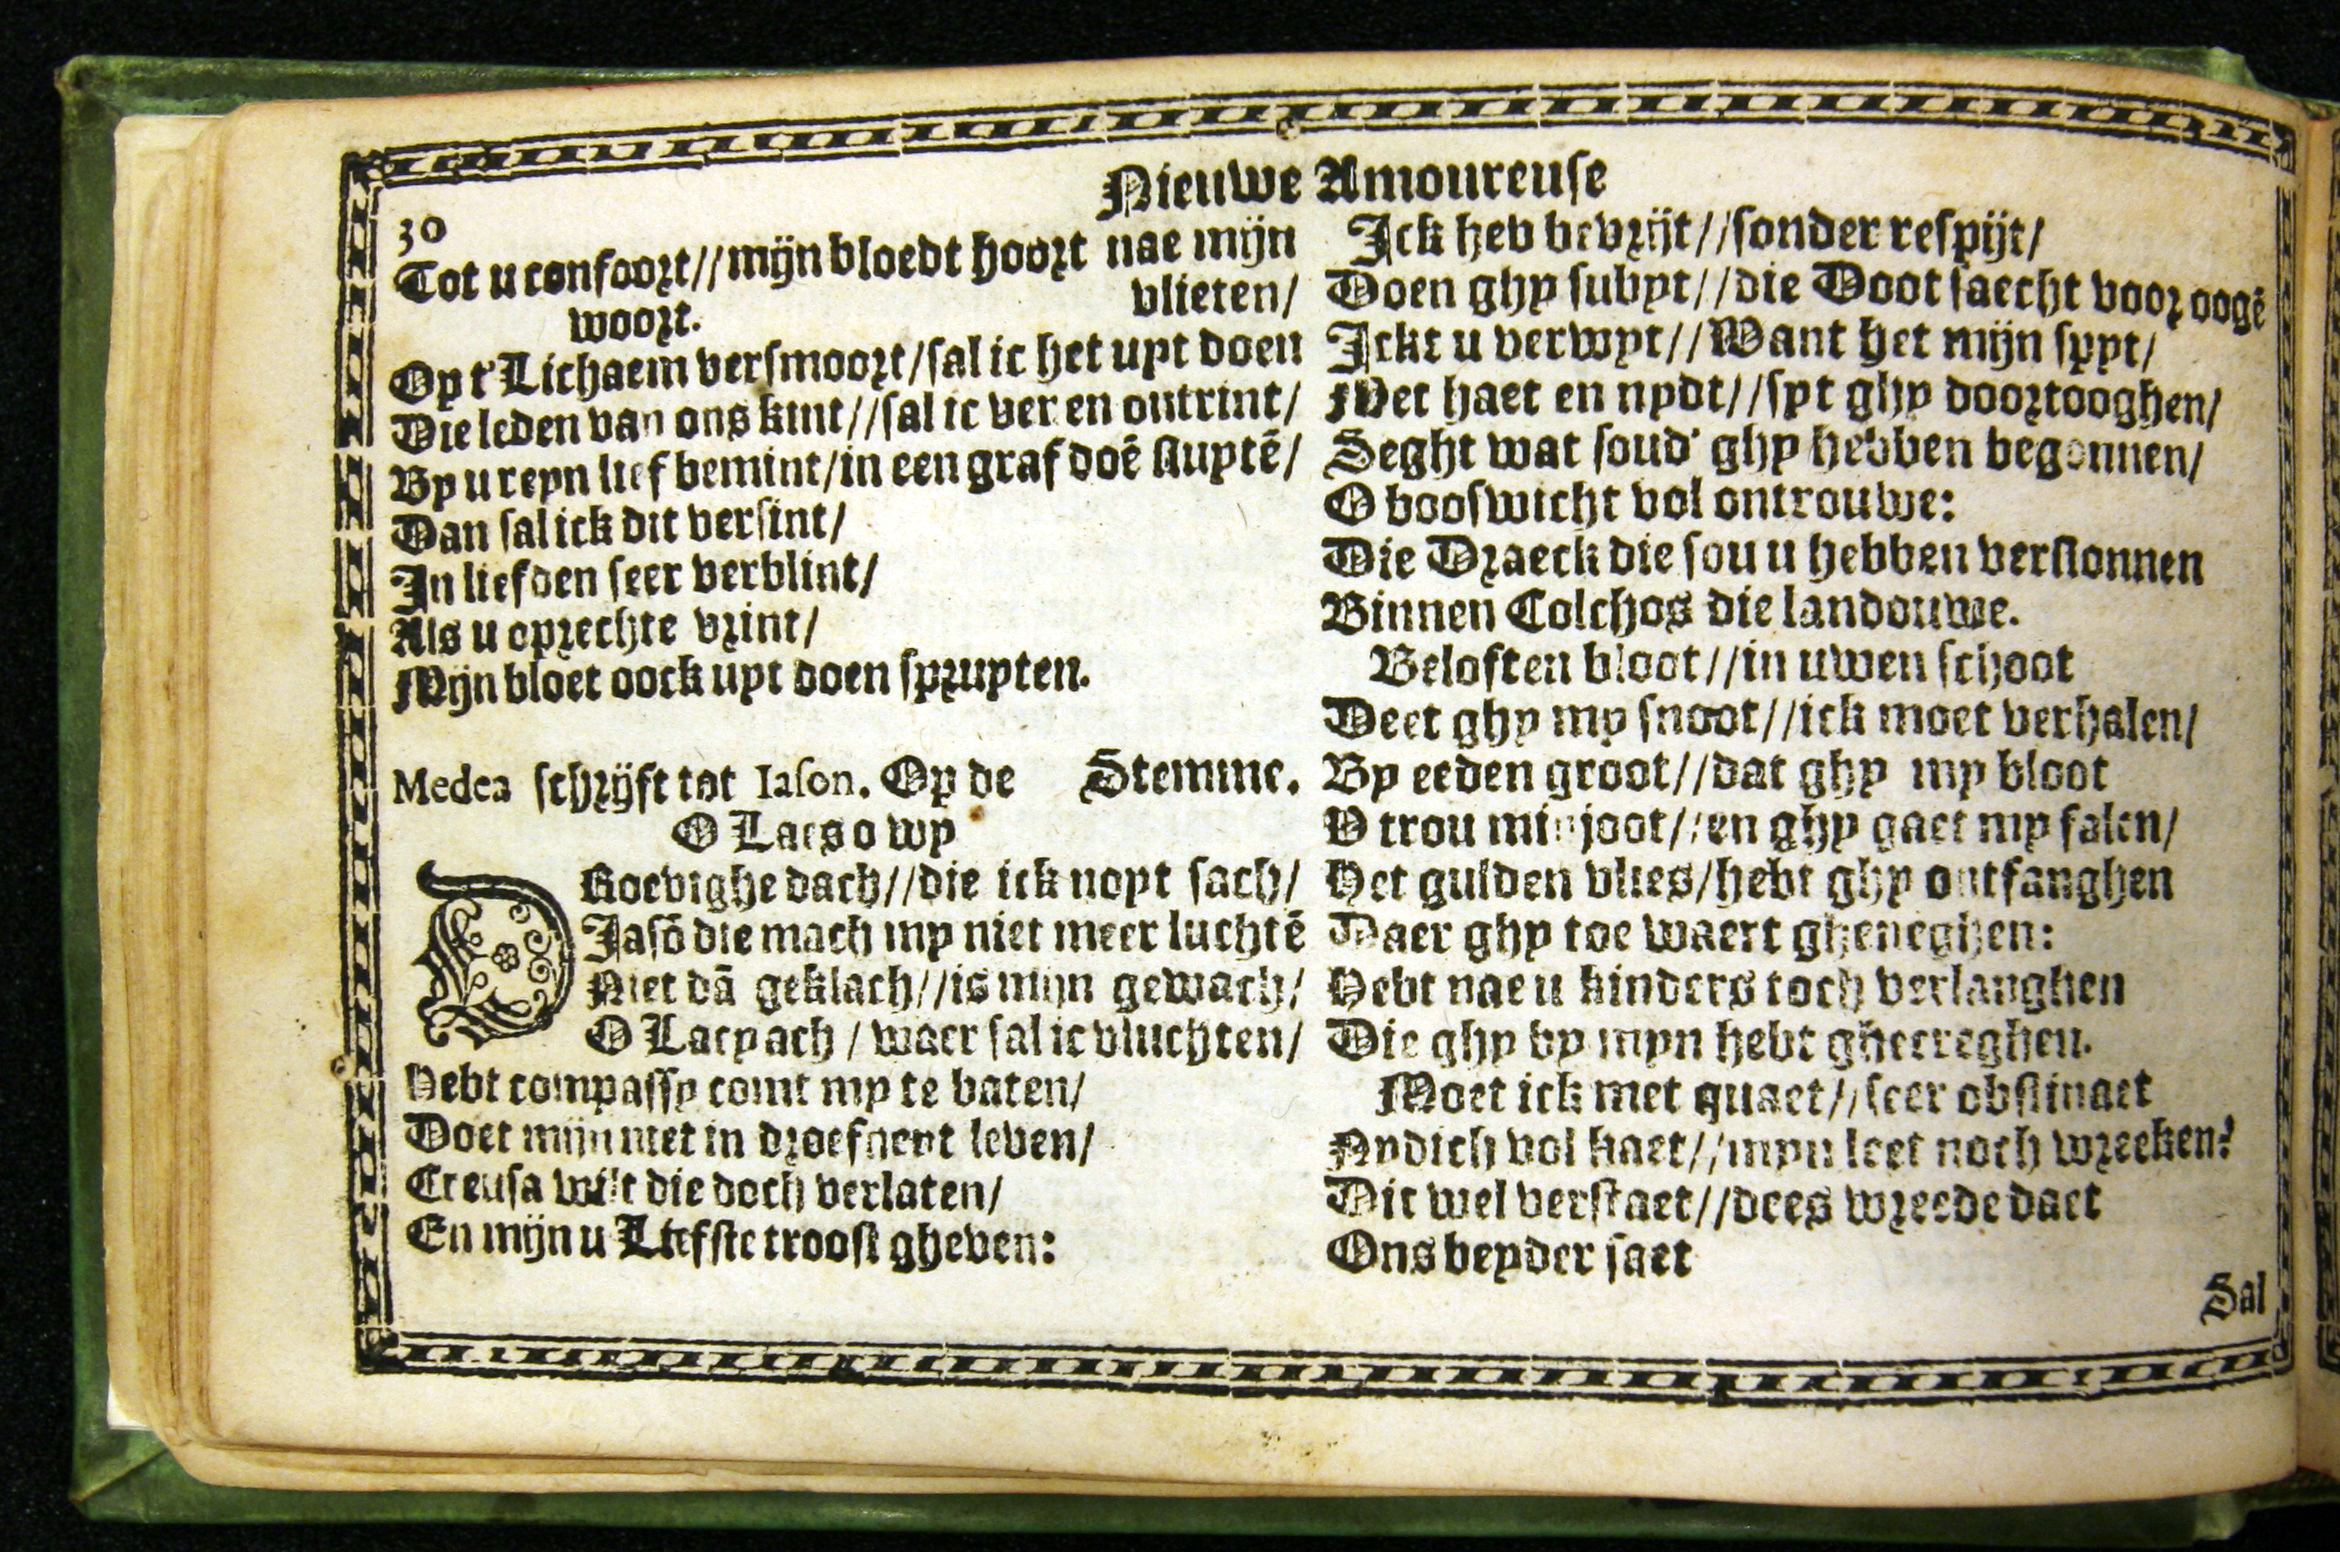 Nieuwe Amoureuse
30
Tot u confoort//mijn bloedt hoort nae mijn
woort.
vlieten/
Op t'Lichaem versmoort/sal ic het upt doen
Die leden van ons kint//sal ic ver en ontrint/
By u reyn lief bemint/in een graf doē sluytē/
Dan sal ick dit versint/
In liefden seer verblint/
Als u oprechte vrint/
Mijn bloet oock uyt doen spruyten.
Medea schrijft tot Iason. Op de Stemme.
O Laes o wy
DRoevighe dach//die ick noyt sach/
Jasō die mach my niet meer luchtē
Niet dā geklach//is mijn gewach/
O Lacy ach / waer sal ic vluchten/
Hebt compassy comt my te baten/
Doet mijn niet in droefheyt leven/
Creusa wilt die doch verlaten/
En mijn u Liefste troost gheven:
Ick heb bevrijt//sonder respijt/
Doen ghy subyt//die Doot saecht voor oogē
Ickt u verwyt//Want het mijn spyt/
Met haet en nydt//syt ghy doortooghen/
Seght wat soud' ghy hebben begonnen/
O booswicht vol ontrouwe:
Die Draeck die sou u hebben verslonnen
Binnen Colchos die landouwe.
Beloften bloot//in uwen schoot
Deet ghy my snoot//ick moet verhalen/
By eeden groot//dat ghy my bloot
V trou minjoot//en ghy gaet my falen/
Het gulden vlies/hebt ghy ontfanghen
Daer ghy toe waert gheneghen:
Hebt nae u kinders toch verlanghen
Die ghy by myn hebt ghecreghen.
Moet ick met quaet//seer obstinaet
Nydich vol haet//myn leet noch wreeken?
Dit wel verstaet//dees wreede daet
Ons beyder saet
Sal